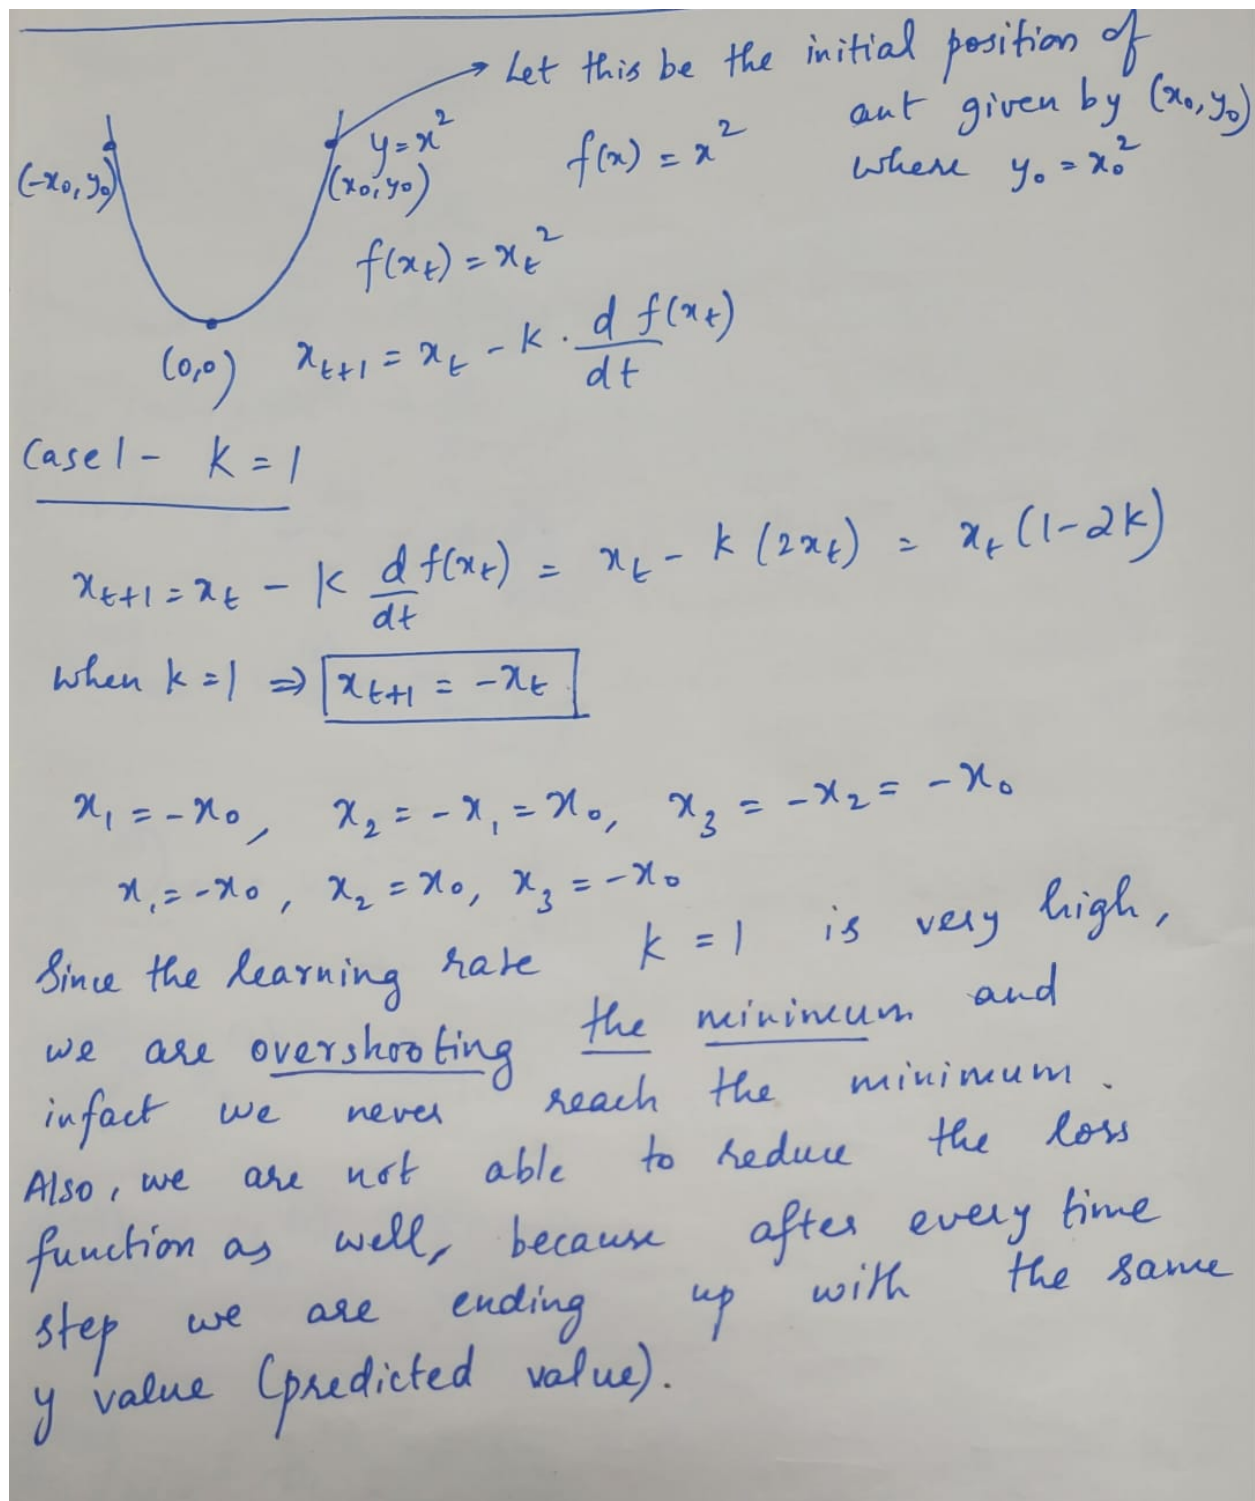 Let this be the initial position of
ant given by (x₀, y₀)
where y₀ = x₀²
y = x²
f(x) = x²
(-x₀, y₀)
(x₀, y₀)
f(xₜ) = xₜ²
(0,0)
xₜ₊₁ = xₜ - k · d f(xₜ)/dt
Case 1 - k = 1
xₜ₊₁ = xₜ - k d f(xₜ)/dt = xₜ - k (2xₜ) = xₜ (1-2k)
when k = 1 ⇒ xₜ₊₁ = -xₜ
x₁ = -x₀, x₂ = -x₁ = x₀, x₃ = -x₂ = -x₀
x₁ = -x₀, x₂ = x₀, x₃ = -x₀
Since the learning rate k = 1 is very high,
we are overshooting the minimum and
infact we never reach the minimum.
Also, we are not able to reduce the loss
function as well, because after every time
step we are ending up with the same
y value (predicted value).